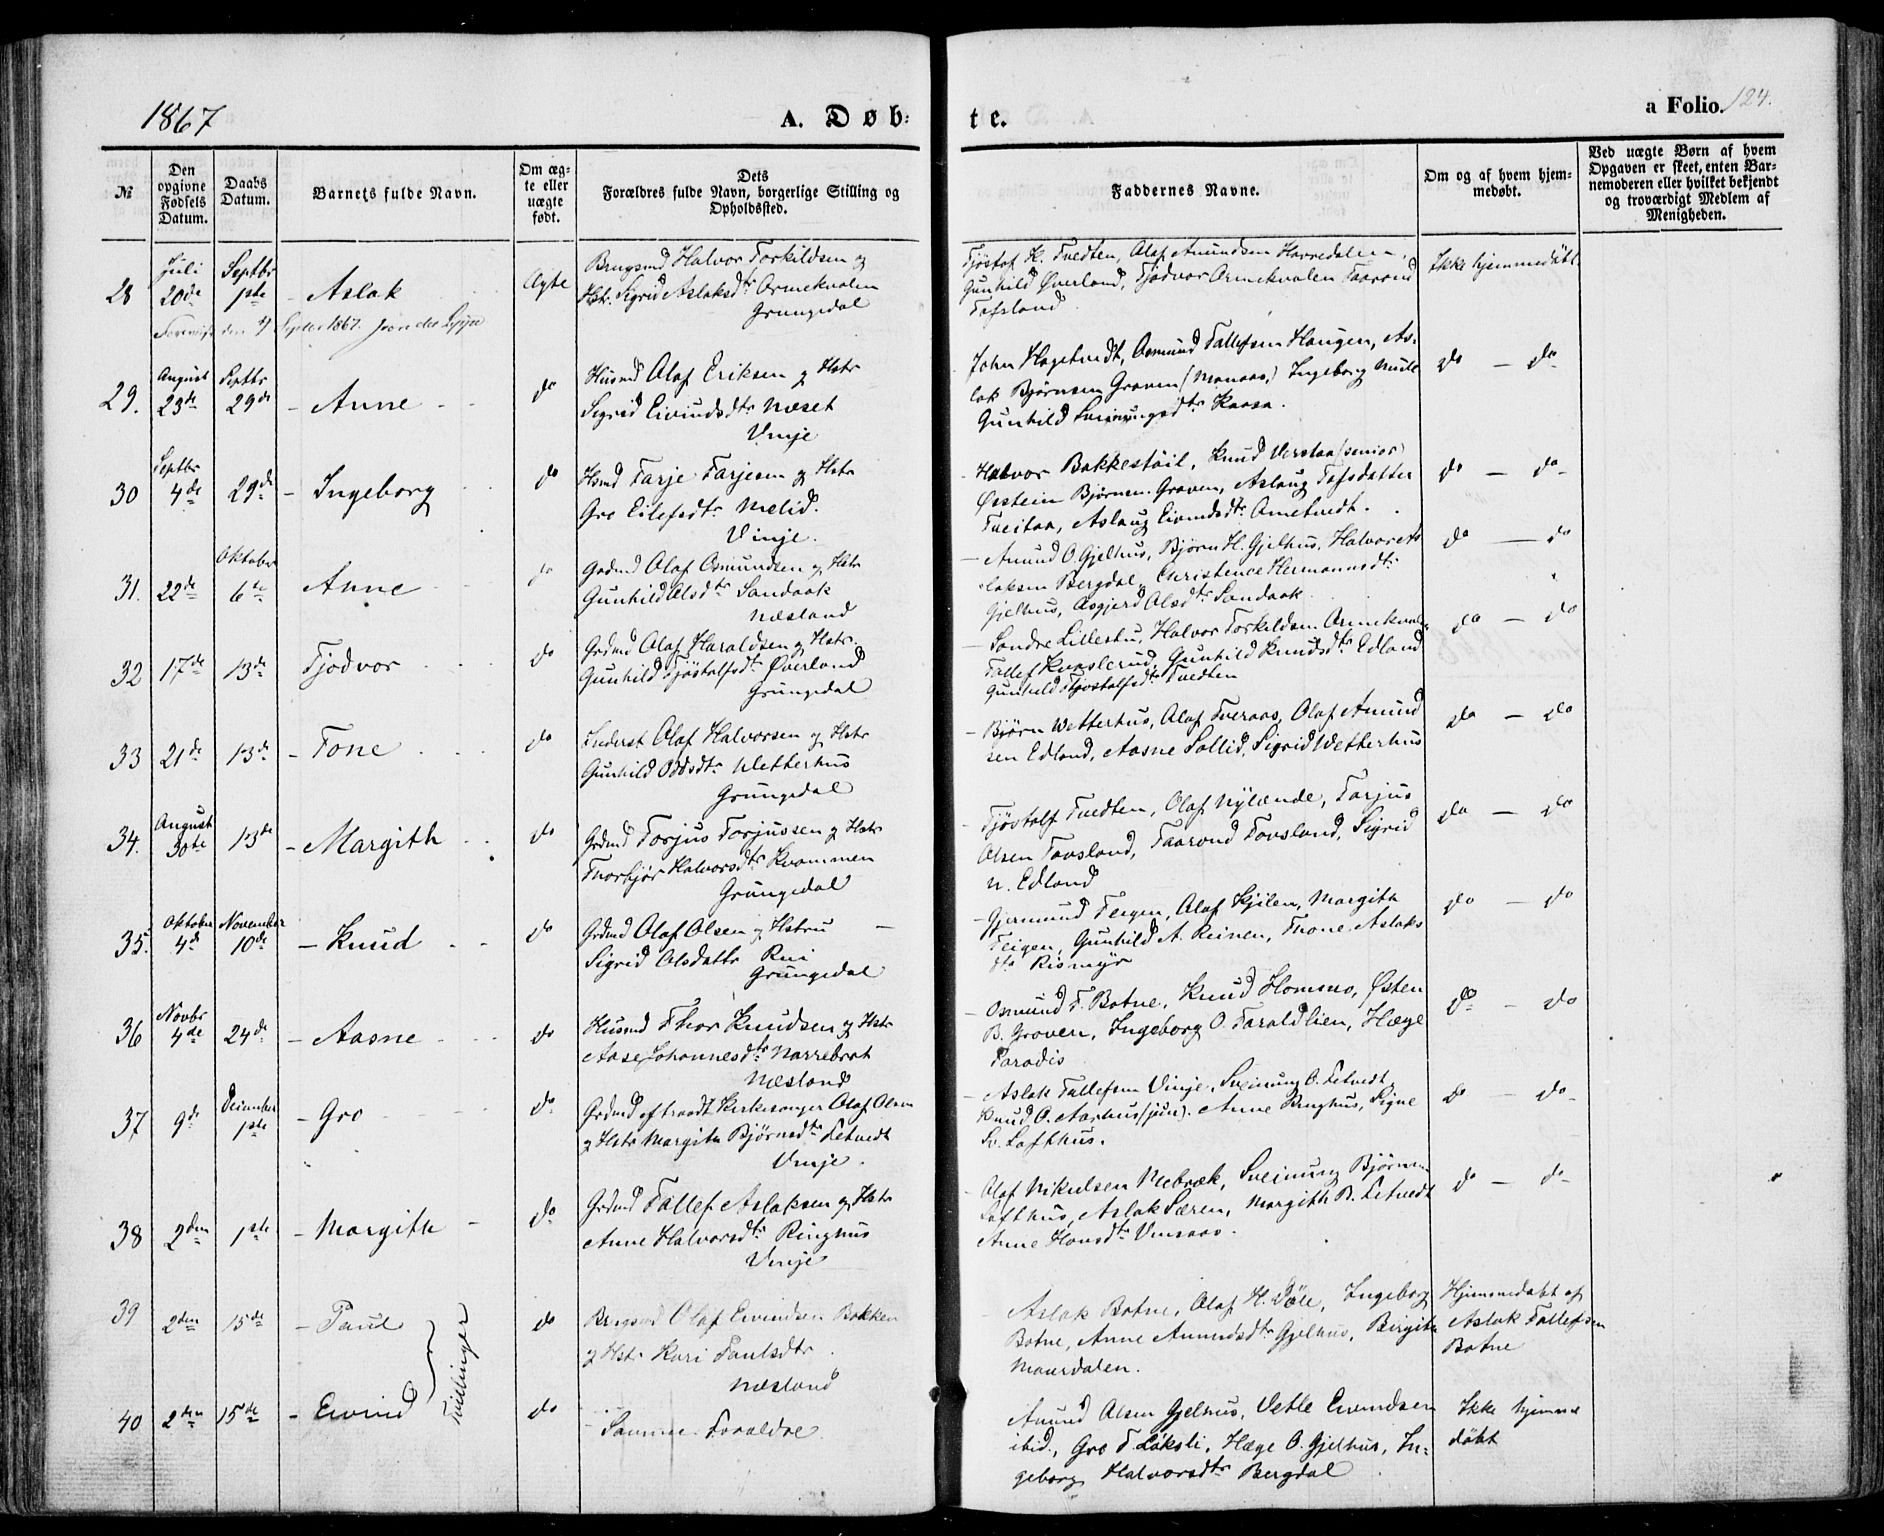 1867
A. Døb:
te.
a Folio. 124.
№
Den opgivne Fødsels Datum.
Daabs Datum.
Barnets fulde Navn.
Om ægte eller uægte født.
Dets Forældres fulde Navn, borgerlige Stilling og Opholdssted.
Faddernes Navne.
Om og af hvem hjemmedøbt.
Ved uægte Børn af hvem Opgaven er skeet, enten Barnemoderen eller hvilket bekjendt og troværdigt Medlem af Menigheden.
28 Juli 20de Septbr 1ste – Aslak Ægte
Brugsmd Halvor Torkildsen og
Hstr. Sigrid Aslaksdtr Ormekvalen
Grungedal
Tjøstof H. Tvedten, Olaf Amundsen
Gunhild Øverland, Tjodvor Ormekvalen Taarond
Tofsland
Ikke hjemmedøbt
29. August 23de Septbr 29de – Anne do
Husmd Olaf Eriksen og Hstr
Sigrid Eivindsdtr Næset
Vinje
John Hagetvedt, Osmund Tallefsen Haugen, As-
lak Bjørnsen Groven (Manaas), Ingeborg
Gunhild Sveinungsdtr Kaasa.
do – do
30 Septbr 4de 29de – Ingeborg do
Hsmd Tarje Tarjesen og Hstr
Gro Eilefsdtr Melid.
Vinje.
Halvor Bakkestøil, Knud Verstaa (senior)
Østein Bjørnsen Groven, Aslaug Tofsdatter
Tveitaa, Aslaug Eivindsdtr Ometvedt.
do – do
31. 22de Oktober 6te Anne do
Grdmd Olaf Osmundsen og Hstr
Gunhild Olsdtr Sandaak
Næsland
– Amund O. Gjelhus, Bjørn H. Gjelhus, Halvor As
laksen Bergdal, Christence Hermannsdtr
Gjelhus, Asgjerd Olsdtr Sandaak
do – do
32 17de 13de – Tjodvor do
Grdmd Olaf Haraldsen og Hstr.
Gunhild Tjøstolfsdtr Øverland
Grungedal
– Sondre Lillestu, Halvor Torkildsen Ormekvalen
Tallef Kvaslerud, Gunhild Knudsdtr Edland
Gunhild Tjøstolfsdtr Tvedten
do – do
33 21de 13de – Tone do
Inderst Olaf Halvorsen og Hstr
Gunhild Oddsdtr Wetterhus
Grungedal
– Bjørn Wetterhus, Olaf Tveraas, Olaf Amund
sen Edland, Aasne Sollid, Sigrid Wetterhus
do – do
34. August 30te 13de – Margith do
Grdmd Torjus Torjussen og Hstr
Thorbjør Halvorsdtr Kvammen
Grungedal
– Tjøstolf Tvedten, Olaf Nylænde, Torjus
Olsen Tovsland, Taarond Tovsland, Sigrid
N. Edland
do – do
35. Oktober 4de November 10de – Knud do
Grdmd Olaf Olsen og Hstru –
Sigrid Olsdattr Rui
Grungedal
– Gjermund Teigen, Olaf Kjilen, Margith
Teigen, Gunhild A. Reinen, Thone Aslaks
dtr Rismyr
do – do
36 Novbr 4de 24de – Aasne do
Husmd Thor Knudsen og Hstr
Aase Johannesdtr Norrebrot
Næsland
– Osmund T. Botne, Knud Hommo, Østen
B. Groven, Ingeborg O. Taraldlien, Hæge
Paradis
do – do
37 9de December 1ste – Gro do
Grdmd aftraadt Kirkesanger Olaf Olsen
og Hstr Margith Bjørnsdtr Letvedt
Vinje.
– Aslak Tallefsen Vinje, Sveinung O. Letvedt,
Knud O. Aarhus (jun), Anne Ringhus, Signe
Sv. Lofthus.
do – do
38 2den 1ste – Margith – do
Grdmd Tallef Aslaksen og Hstr
Anne Halvorsdtr Ringhus
Vinje
– Olaf Nikulsen Nebræk, Sveinung Bjørnsen
Lofthus, Aslak Særen, Margith B. Letvedt
Anne Hansdtr Vinsaas.
do – do
39 2den 15de – Paul do
Tvillinger
Brugsmd Olaf Eivindsen Bakken
og Hstr Kari Paulsdtr.
Næsland
– Aslak Botne, Olaf H. Døle, Ingeborg
Botne, Anne Amundsdtr Gjelhus, Birgith
Maurdalen.
Hjemmedøbt af
Aslak Tallefsen
Botne
40 2den 15de – Eivind do
– Samme Forældre
Amund Olsen Gjelhus, Vetle Eivindsen
ibid., Gro T Løksli, Hæge O. Gjelhus, In-
geborg Halvorsdtr Bergdal
Ikke hjemme
døbt